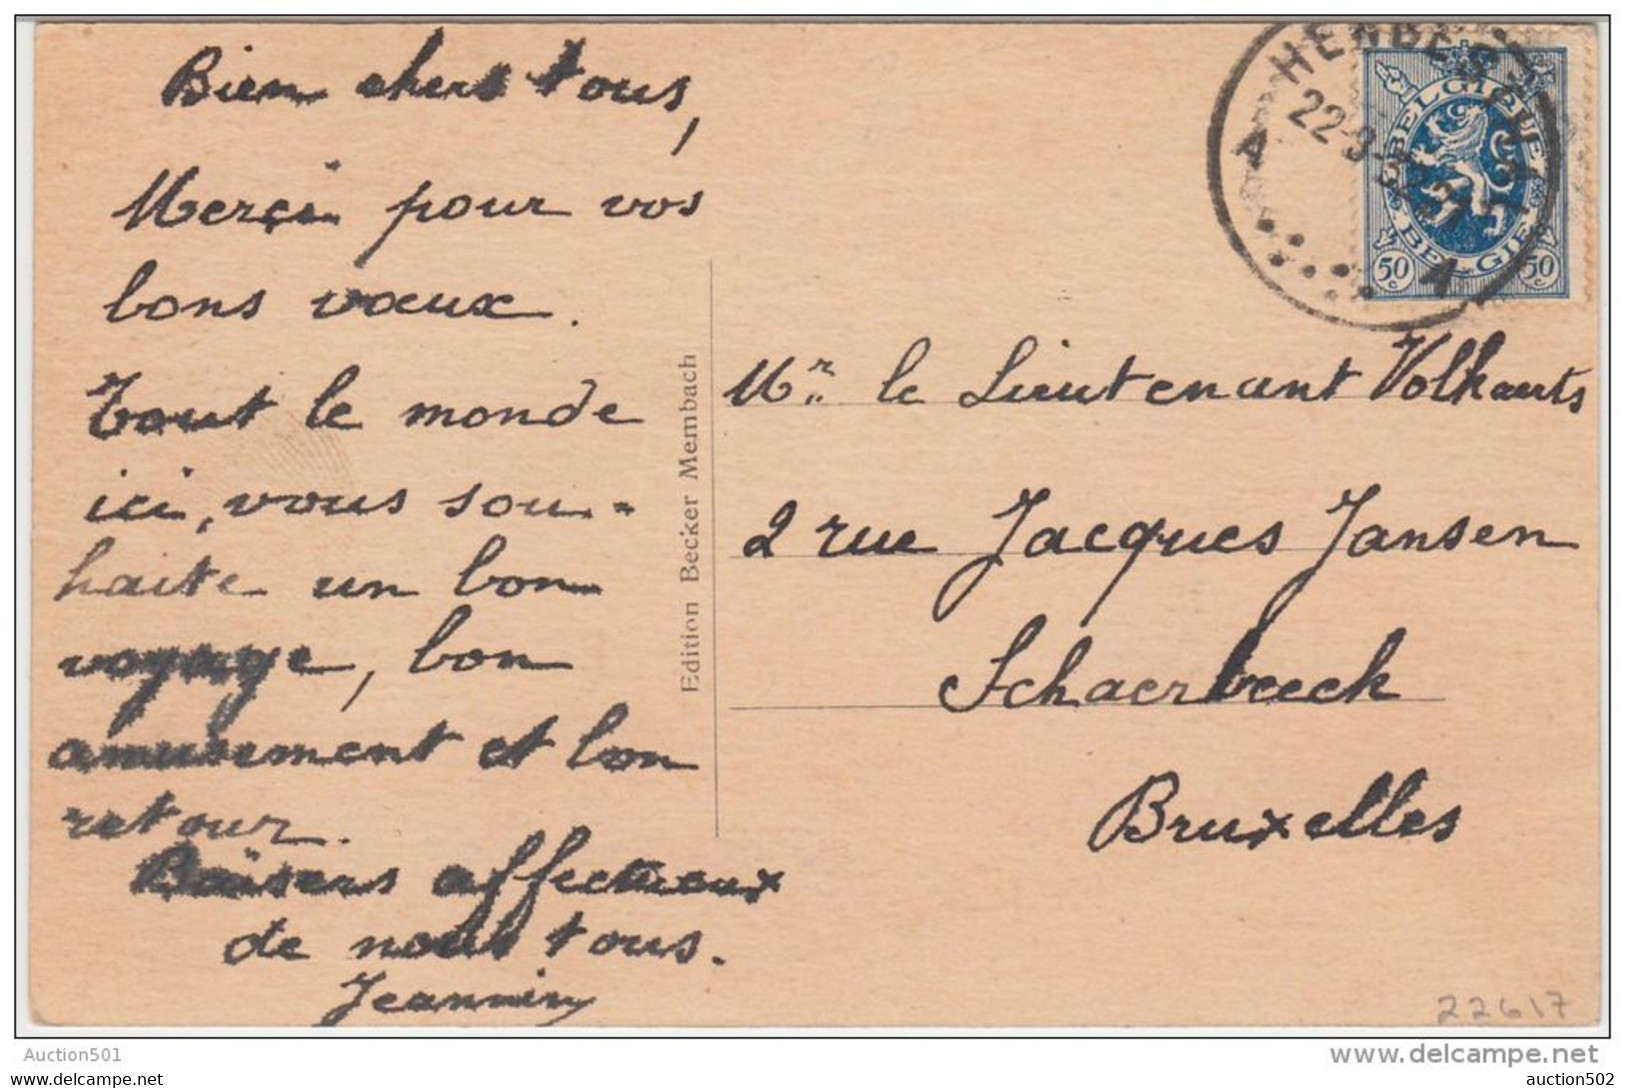 Bien chers tous,
Merci pour vos
bons vœux.
Tout le monde
ici, vous sou-
haite un bon
voyage, bon
amusement et bon
retour.
Baisers affectueux
de nous tous.
Jeannin
Edition Becker Membach
BELGIQUE
BELGIE
50 c
50 c
22-9
A
A
Mr le Lieutenant Volkaerts
2 rue Jacques Jansen
Schaerbeeck
Bruxelles
22617
Auction501
www.delcampe.net
auction501
auction502